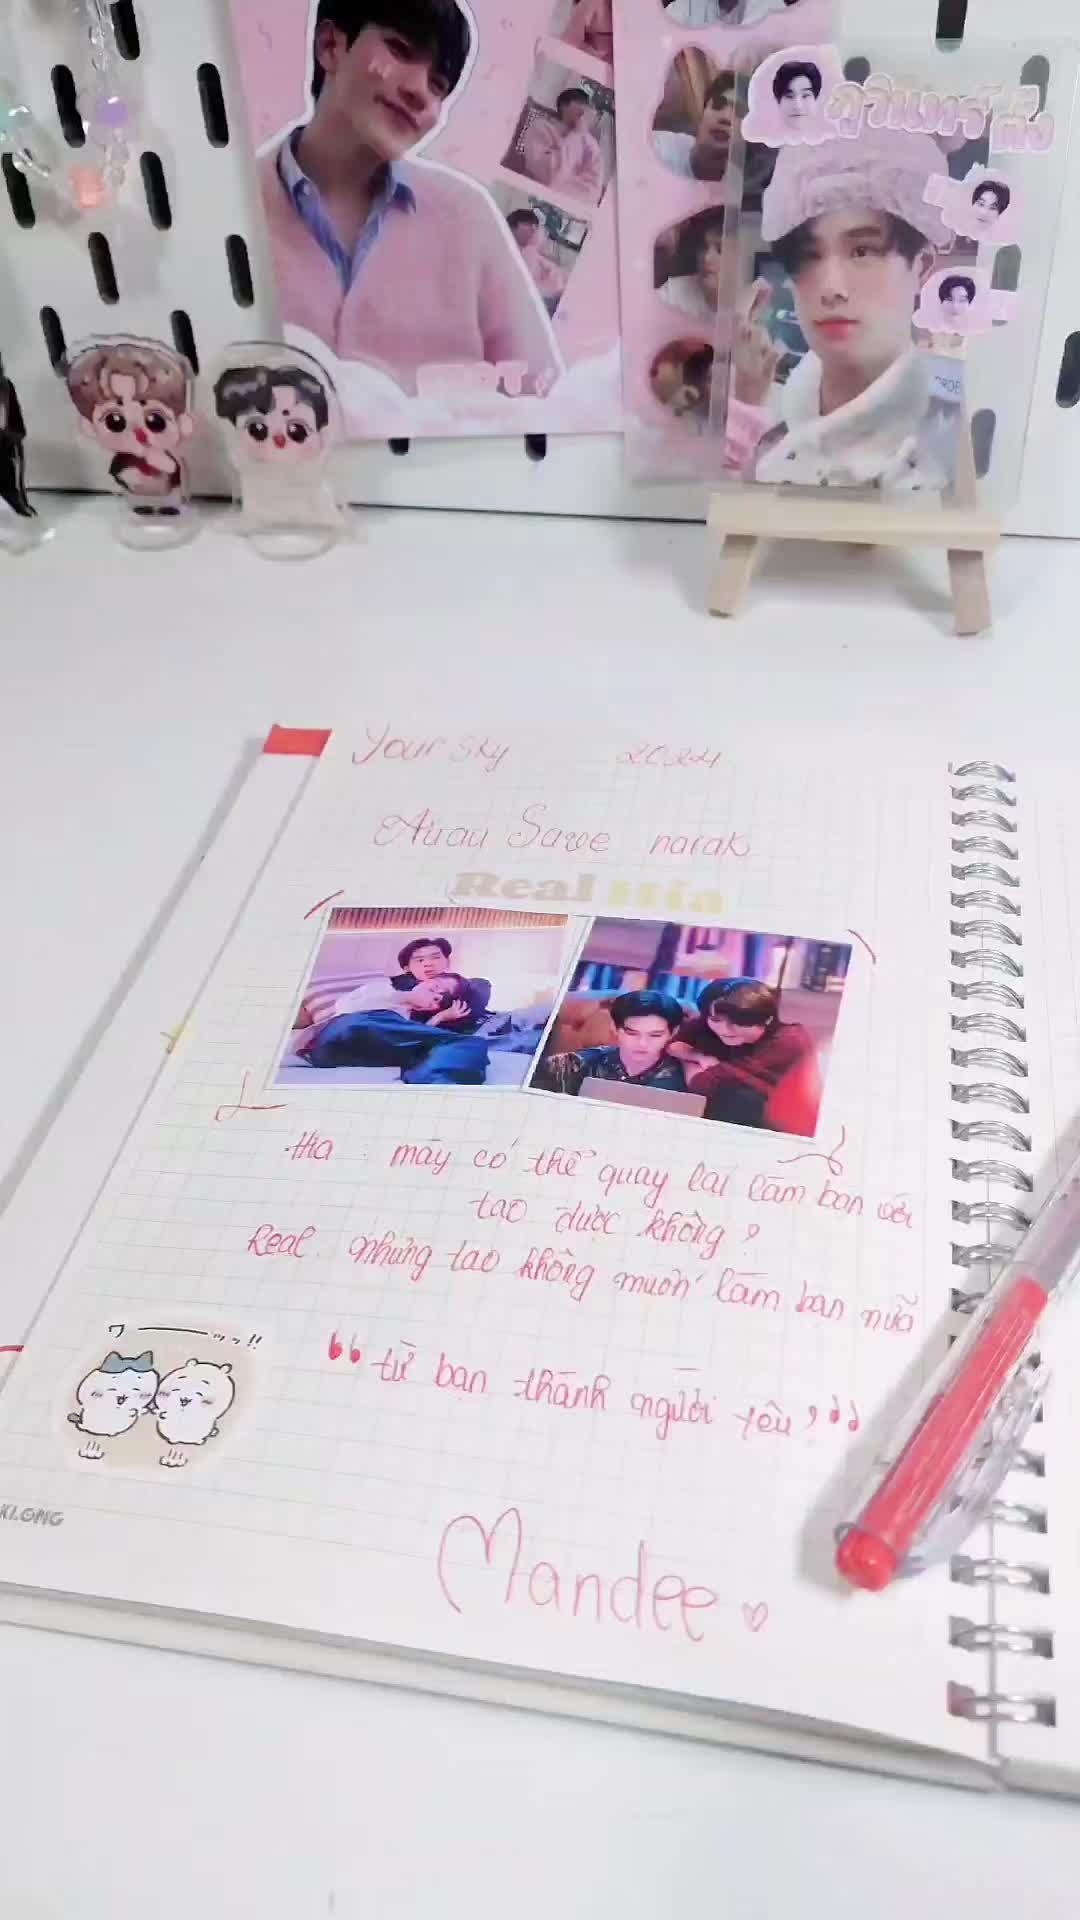 ภูวินทร์ ตั้ง
ORDE
Your sky 2024
Auau Save narak
Real Hia
Hia : mày có thể quay lại làm bạn với
tao được không?
Real. nhưng tao không muốn làm bạn nữa
ワーーッッ!!
“ từ bạn thành người yêu, ”
KLONG
Mandee